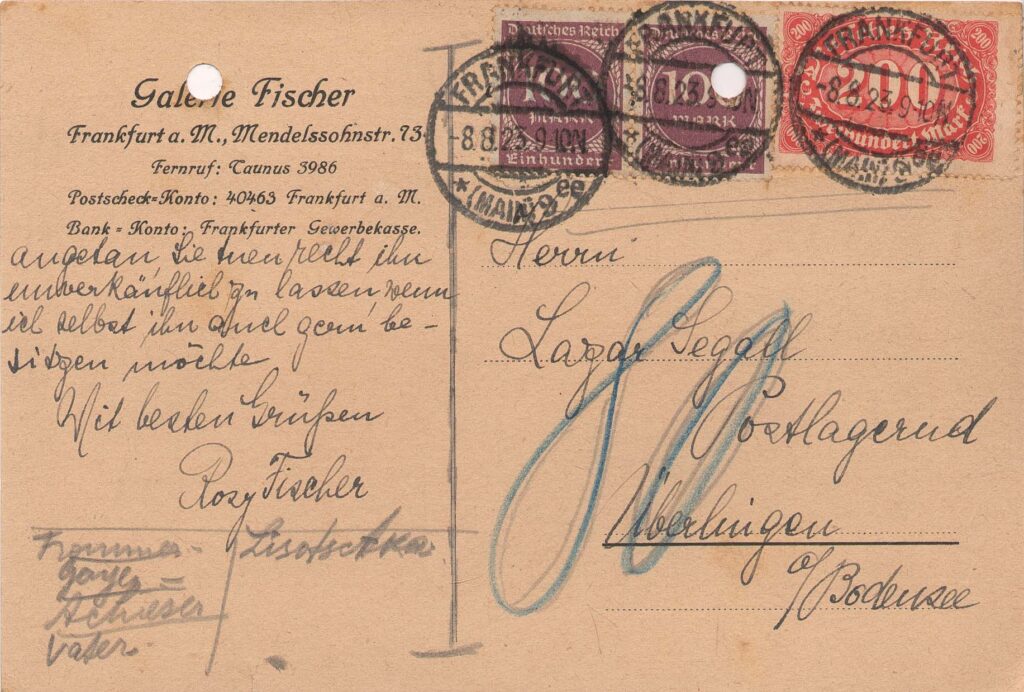 Galerie Fischer
Frankfurt a. M., Mendelssohnstr. 73
Fernruf: Taunus 3986
Postscheck-Konto: 40463 Frankfurt a. M.
Bank-Konto: Frankfurter Gewerbekasse.
angetan Sie tuen recht ihn
unverkäuflich zu lassen, wenn
ich selbst ihn auch gern be-
sitzen möchte
Mit besten Grüßen
Rosy Fischer
Lisotschka
Achieser
Vater
Deutsches Reich
100
MARK
Einhundert
100
MARK
200
200
200
200
Zweihundert Mark
FRANKFURT
-8.8.23.9-10N
*(MAIN)9ee
FRANKFURT
8.8.23.9-10N
*(MAIN)9ee
FRANKFURT
-8.8.23.9-10N
*(MAIN)9ee
Herrn
Lazar Segall
Postlagernd
Überlingen
a/Bodensee
80